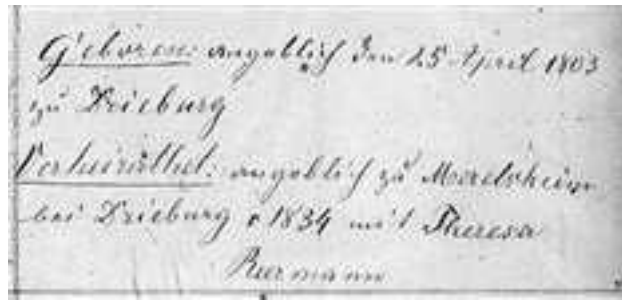 Geboren: angeblich den 25 April 1803
zu Drieburg
Verheirathet: angeblich zu
bei Drieburg 1834 mit Theresa